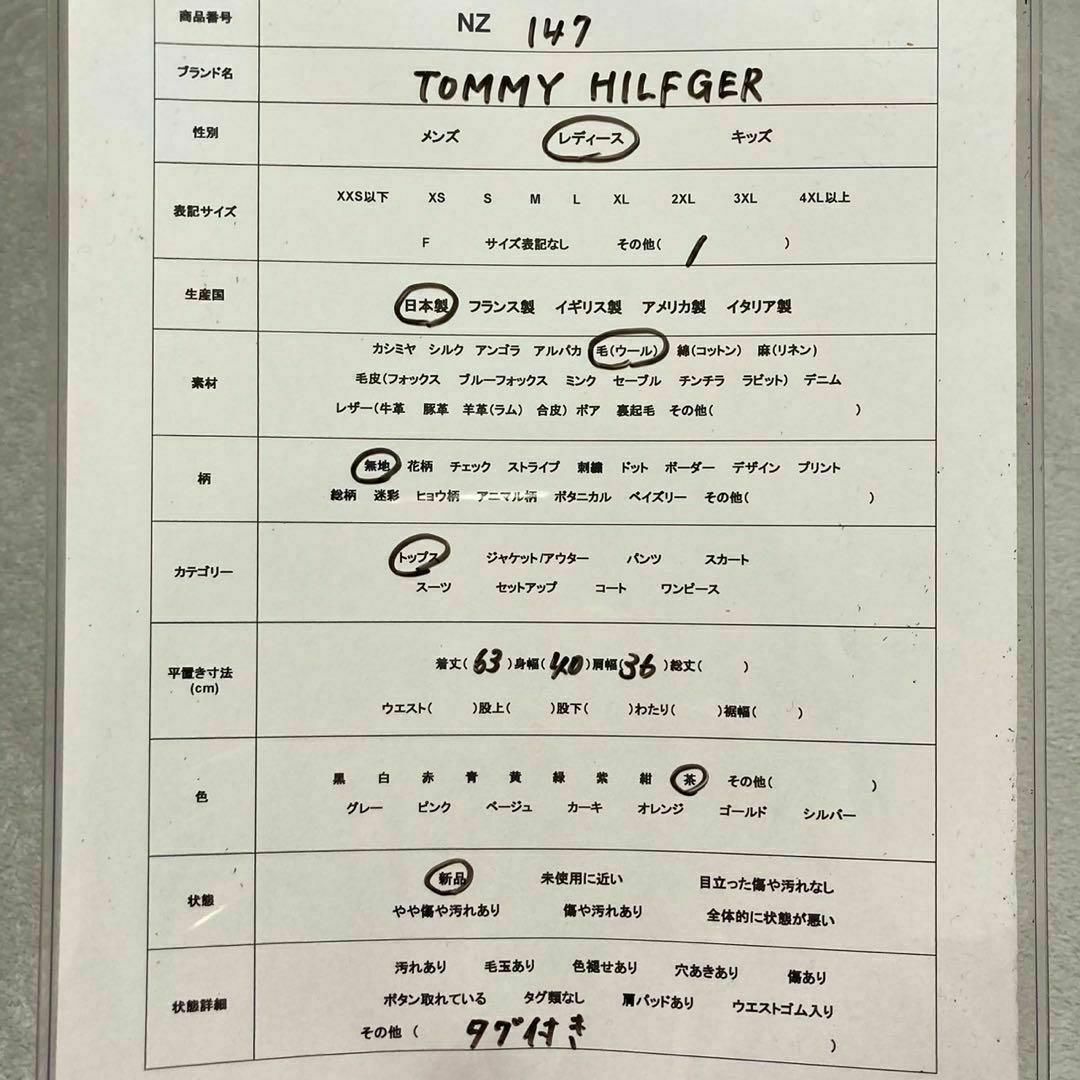 商品番号 NZ 147
ブランド名 TOMMY HILFGER
性別 メンズ レディース キッズ
表記サイズ XXS以下 XS S M L XL 2XL 3XL 4XL以上
F サイズ表記なし その他( 1 )
生産国 日本製 フランス製 イギリス製 アメリカ製 イタリア製
カシミヤ シルク アンゴラ アルパカ 毛(ウール) 綿(コットン) 麻(リネン)
素材 毛皮(フォックス ブルーフォックス ミンク セーブル チンチラ ラビット) デニム
レザー(牛革 豚革 羊革(ラム) 合皮) ボア 裏起毛 その他( )
柄 無地 花柄 チェック ストライプ 刺繍 ドット ボーダー デザイン プリント
総柄 迷彩 ヒョウ柄 アニマル柄 ボタニカル ペイズリー その他( )
カテゴリー トップス ジャケット/アウター パンツ スカート
スーツ セットアップ コート ワンピース
平置き寸法 着丈( 63 )身幅( 40 )肩幅( 36 )総丈( )
(cm)
ウエスト( )股上( )股下( )わたり( )裾幅( )
色 黒 白 赤 青 黄 緑 紫 紺 茶 その他( )
グレー ピンク ベージュ カーキ オレンジ ゴールド シルバー
状態 新品 未使用に近い 目立った傷や汚れなし
やや傷や汚れあり 傷や汚れあり 全体的に状態が悪い
汚れあり 毛玉あり 色褪せあり 穴あきあり 傷あり
状態詳細 ボタン取れている タグ類なし 肩パッドあり ウエストゴム入り
その他 ( タグ付き )